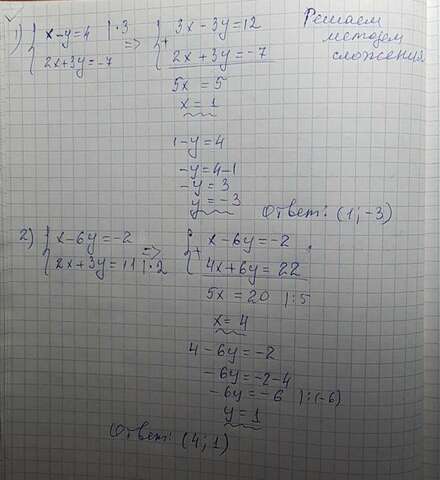 1) { x-y=4 |·3 => { 3x-3y=12
2x+3y=-7 + 2x+3y=-7
Решаем
методом
сложения
5x = 5
x = 1
1-y=4
-y=4-1
-y=3
y=-3
Ответ: (1;-3)
2) { x-6y=-2 => { x-6y=-2
2x+3y=11 |·2 + 4x+6y=22
5x = 20 |:5
x = 4
4-6y=-2
-6y=-2-4
-6y=-6 |:(-6)
y=1
Ответ: (4;1)